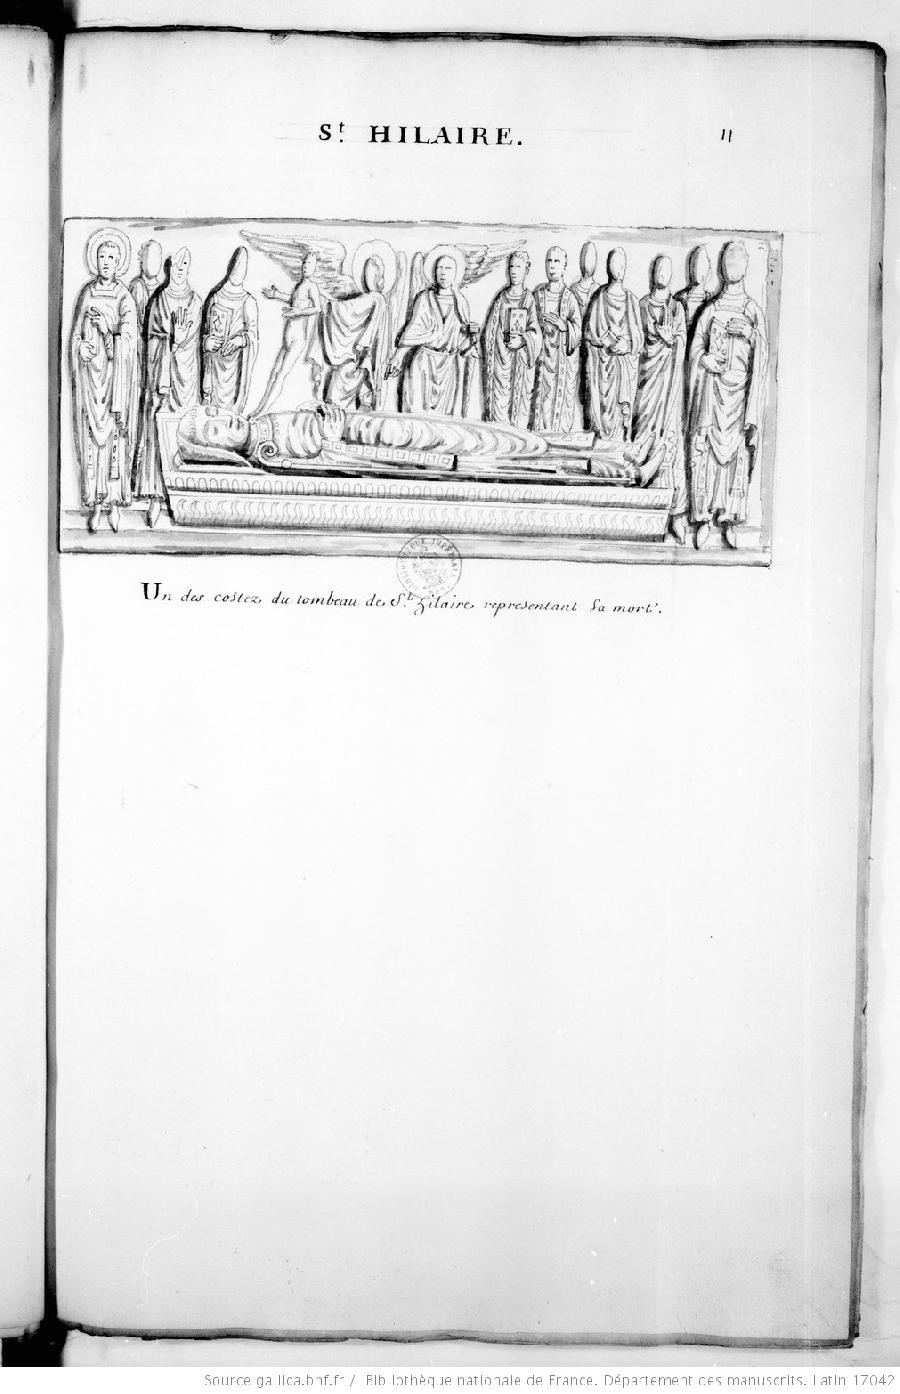 St. HILAIRE.
11
Un des costez du tombeau de St. hilaire representant sa mort.
Source gallica.bnf.fr / Bibliothèque nationale de France. Département des manuscrits. Latin 17042